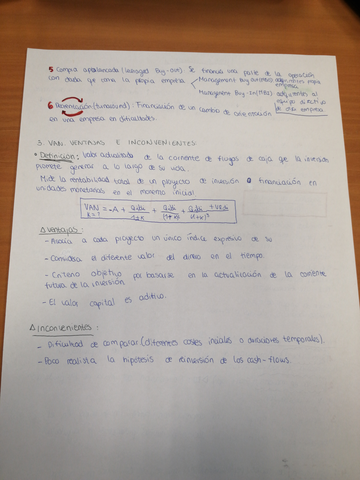 5 Compra apalancada (leveraged Buy-out). Se financia una parte de la operación
con deuda que toma la propia empresa
Management Buy-out(MBO)
empresa
Management Buy-In(MBI)
equipo directivo
de otra empresa
6 Reorientación (turnaround). Financiación de un cambio de orientación
en una empresa en dificultades.
3. VAN. VENTAJAS E INCONVENIENTES
* Definición: Valor actualizado de la corriente de flujos de caja que la inversión
promete generar a lo largo de su vida.
Mide la rentabilidad total de un proyecto de inversión o financiación en
unidades monetarias en el momento inicial
VAN = -A + + +
K = ?
Δ Ventajas:
- Asocia a cada proyecto un único índice expresivo de su
- Considera el diferente valor del dinero en el tiempo
- Criterio objetivo por basarse en la actualización de la corriente
futura de la inversión
- El valor capital es aditivo.
Δ Inconvenientes:
- Dificultad de computar (diferentes costes iniciales o duraciones temporales).
- Poco realista la hipótesis de reinversión de los cash-flows.